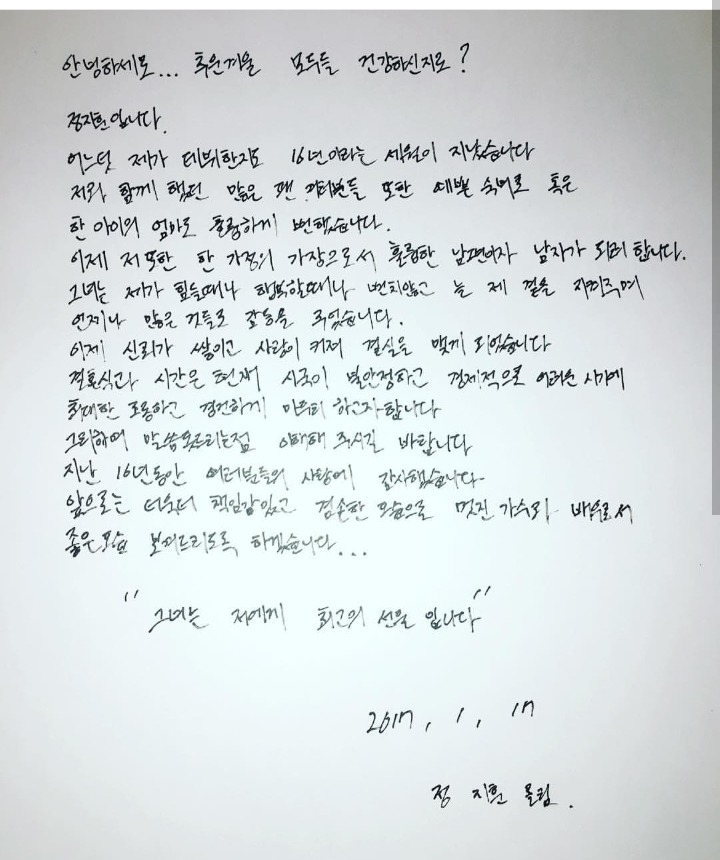 안녕하세요... 추운겨울 모두들 건강하신지요?
정지훈입니다.
어느덧 제가 데뷔한지도 16년이라는 세월이 지났습니다
저와 함께 했던 많은 팬 여러분들 또한 예쁜 숙녀로 혹은
한 아이의 엄마로 훌륭하게 변했습니다.
이제 저 또한 한 가정의 가장으로서 훌륭한 남편이자 남자가 되려 합니다.
그녀는 제가 힘들때나 행복할때나 변치않고 늘 제 곁을 지켜주며
언제나 많은 것들로 감동을 주었습니다.
이제 신뢰가 쌓이고 사랑이 커져 결실을 맺게 되었습니다
결혼식과 시간은 현재 시국이 불안정하고 경제적으로 어려운 시기에
최대한 조용하고 경건하게 마무리 하고자합니다
그리하여 말씀못드리는점 이해해 주시길 바랍니다
지난 16년동안 여러분들의 사랑에 감사했습니다.
앞으로는 더욱더 책임감있고 겸손한 모습으로 멋진 가수와 배우로서
좋은모습 보여드리도록 하겠습니다...
"그녀는 저에게 최고의 선물 입니다"
2017, 1, 17
정 지훈 올림.